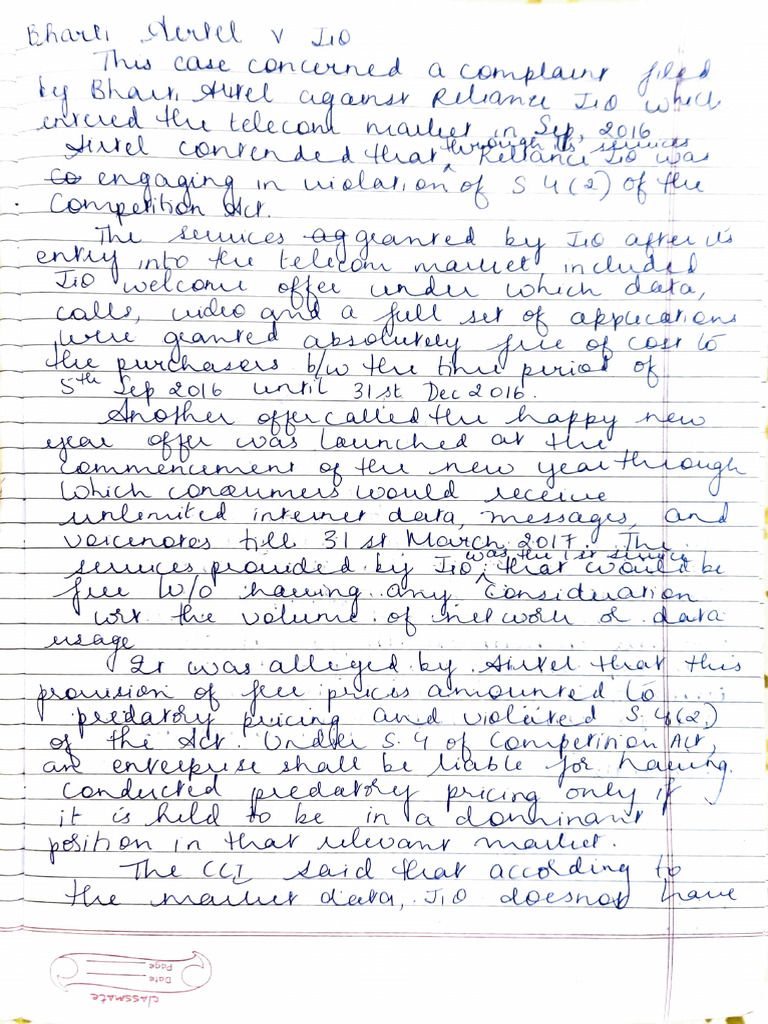 Bharti Airtel v JIO
This case concerned a complaint filed
by Bharti Airtel against Reliance JIO which
entered the telecom market in Sep, 2016
Airtel contended that through its services Reliance JIO was
engaging in violation of S 4(2) of the
Competition Act.
The services granted by JIO after its
entry into the telecom market included
JIO welcome offer under which data,
calls, video and a full set of applications
were granted absolutely free of cost to
the purchasers b/w the time period of
5th Sep 2016 until 31st Dec 2016.
Another offer called the happy new
year offer was launched at the
commencement of the new year through
which consumers would receive
unlimited internet data, messages, and
voicenotes till 31st March 2017. The
services provided by JIO was the 1st service that would be
free w/o having any consideration
wrt the volume of network or data
usage
It was alleged by Airtel that this
provision of free prices amounted to
predatory pricing and violated S.4(2)
of the Act. Under S.4 of Competition Act,
an enterprise shall be liable for having
conducted predatory pricing only if
it is held to be in a dominant
position in that relevant market.
The CCI said that according to
the market data, JIO doesnot have
classmate
Date
Page